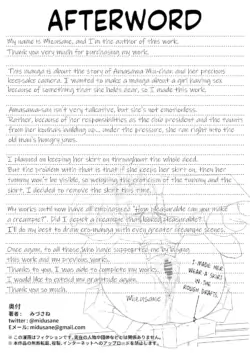 AFTERWORD
My name is Mizusane, and I'm the author of this work.
Thank you very much for purchasing my work.
This manga is about the story of Amasawa Mia-chan and her precious
keepsake camera. I wanted to make a manga about a girl having sex
because of something that she holds dear, so I made this work.
Amasawa-san isn't very talkative, but she's not emotionless.
Rather, because of her responsibilities as the club president and the teasers
from her kouhais building up, under the pressure, she ran right into the
old man's hungry jaws.
I planned on keeping her skirt on throughout the whole deed.
But the problem with that is that if she keeps her skirt on, then her
tummy won't be visible, so weighing the of the tummy and the
skirt, I decided to remove the skirt this time.
My works until now have all "How pleasurable can you make
a creampie?". Did I depict a creampie that looked pleasurable?
I'll do my best to draw ero-manga with even greater creampie scenes.
Once again, to all those who have supported me by buying
this work and my previous works,
Thanks to you, I was able to complete my work.
I would like to extend my gratitude again.
Thank you so much.
Mizusane
I MADE HER
WEAR A SKIRT
IN THE
ROUGH DRAFTS.
奥付
著者： みづさね
twitter : @midusane
Eメール : midusane@gmail.com
※この漫画はフィクションです。実在の人物や団体などとは関係ありません。
※本作品の無断転載、複製、インターネットへのアップロードを禁止します。